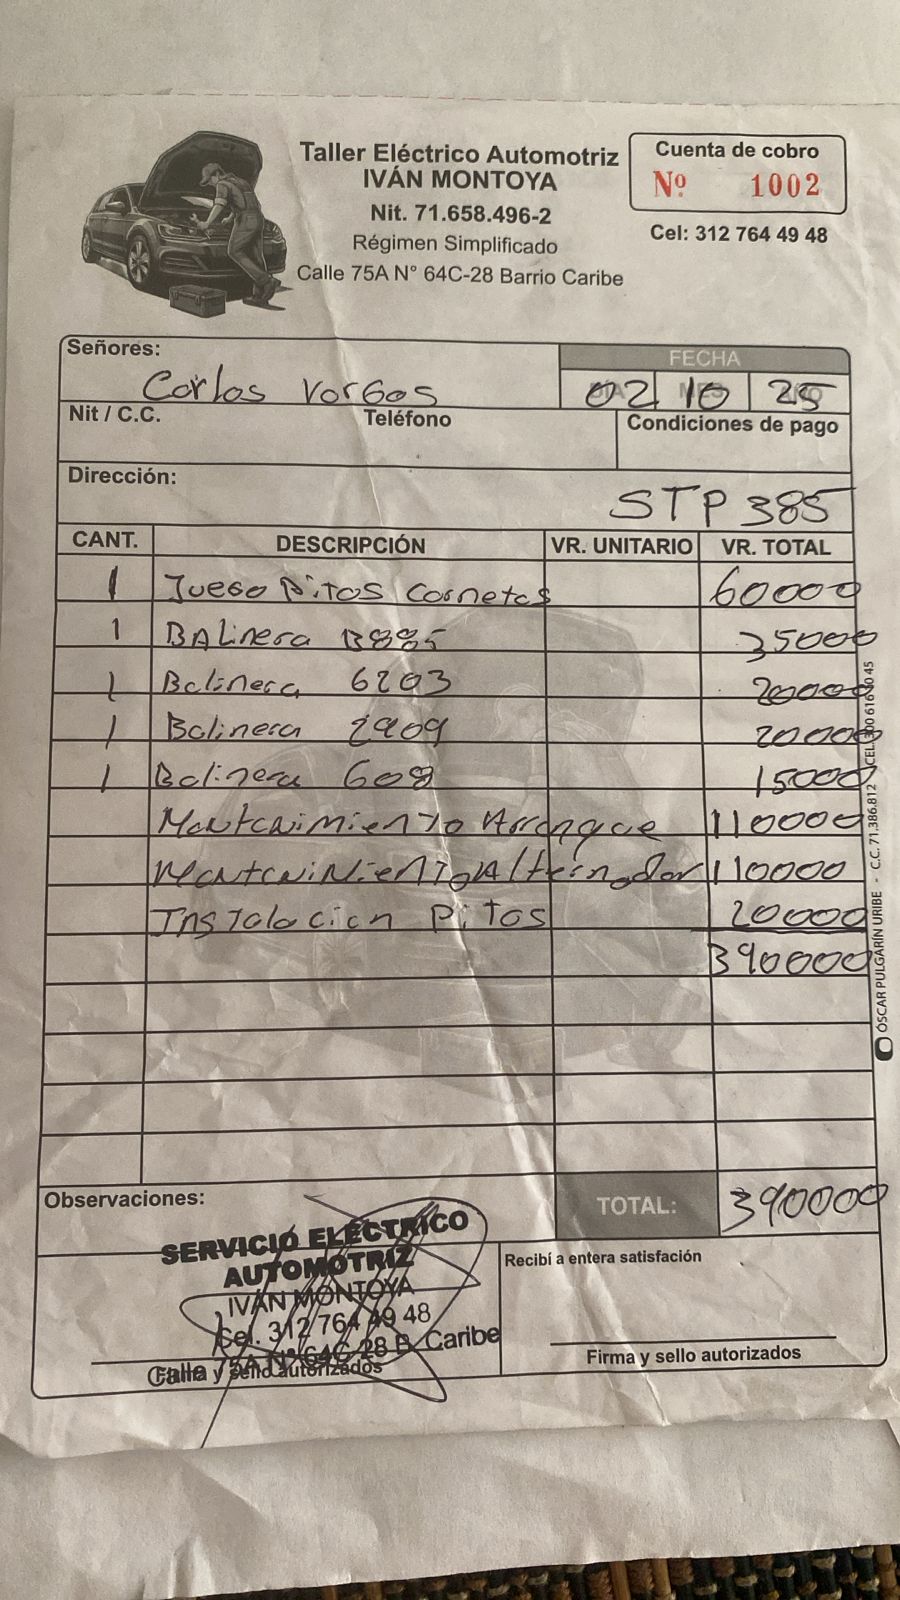 Taller Eléctrico Automotriz
IVÁN MONTOYA
Nit. 71.658.496-2
Régimen Simplificado
Calle 75A N° 64C-28 Barrio Caribe
Cuenta de cobro
Nº 1002
Cel: 312 764 49 48
Señores: Carlos Vargas
FECHA
DÍA MES AÑO
02 10 25
Nit / C.C. Teléfono Condiciones de pago
Dirección:
STP 385
CANT. DESCRIPCIÓN VR. UNITARIO VR. TOTAL
1 Juego Pitos Cornetas 60000
1 BALinera B885 35000
1 Balinera 6203 20000
1 Balinera 2909 20000
1 Balinera 608 15000
Mantenimiento Arranque 110000
Mantenimiento Alternador 110000
Instalacion Pitos 20000
390000
Observaciones:
TOTAL: 390000
SERVICIO ELÉCTRICO
AUTOMOTRIZ
IVÁN MONTOYA
Cel. 312 764 49 48
Calle 75A N° 64C-28 B. Caribe
Firma y sello autorizados
Recibí a entera satisfacción
Firma y sello autorizados
ÓSCAR PULGARÍN URIBE - C.C. 71.386.812 CEL. 300 616 40 45